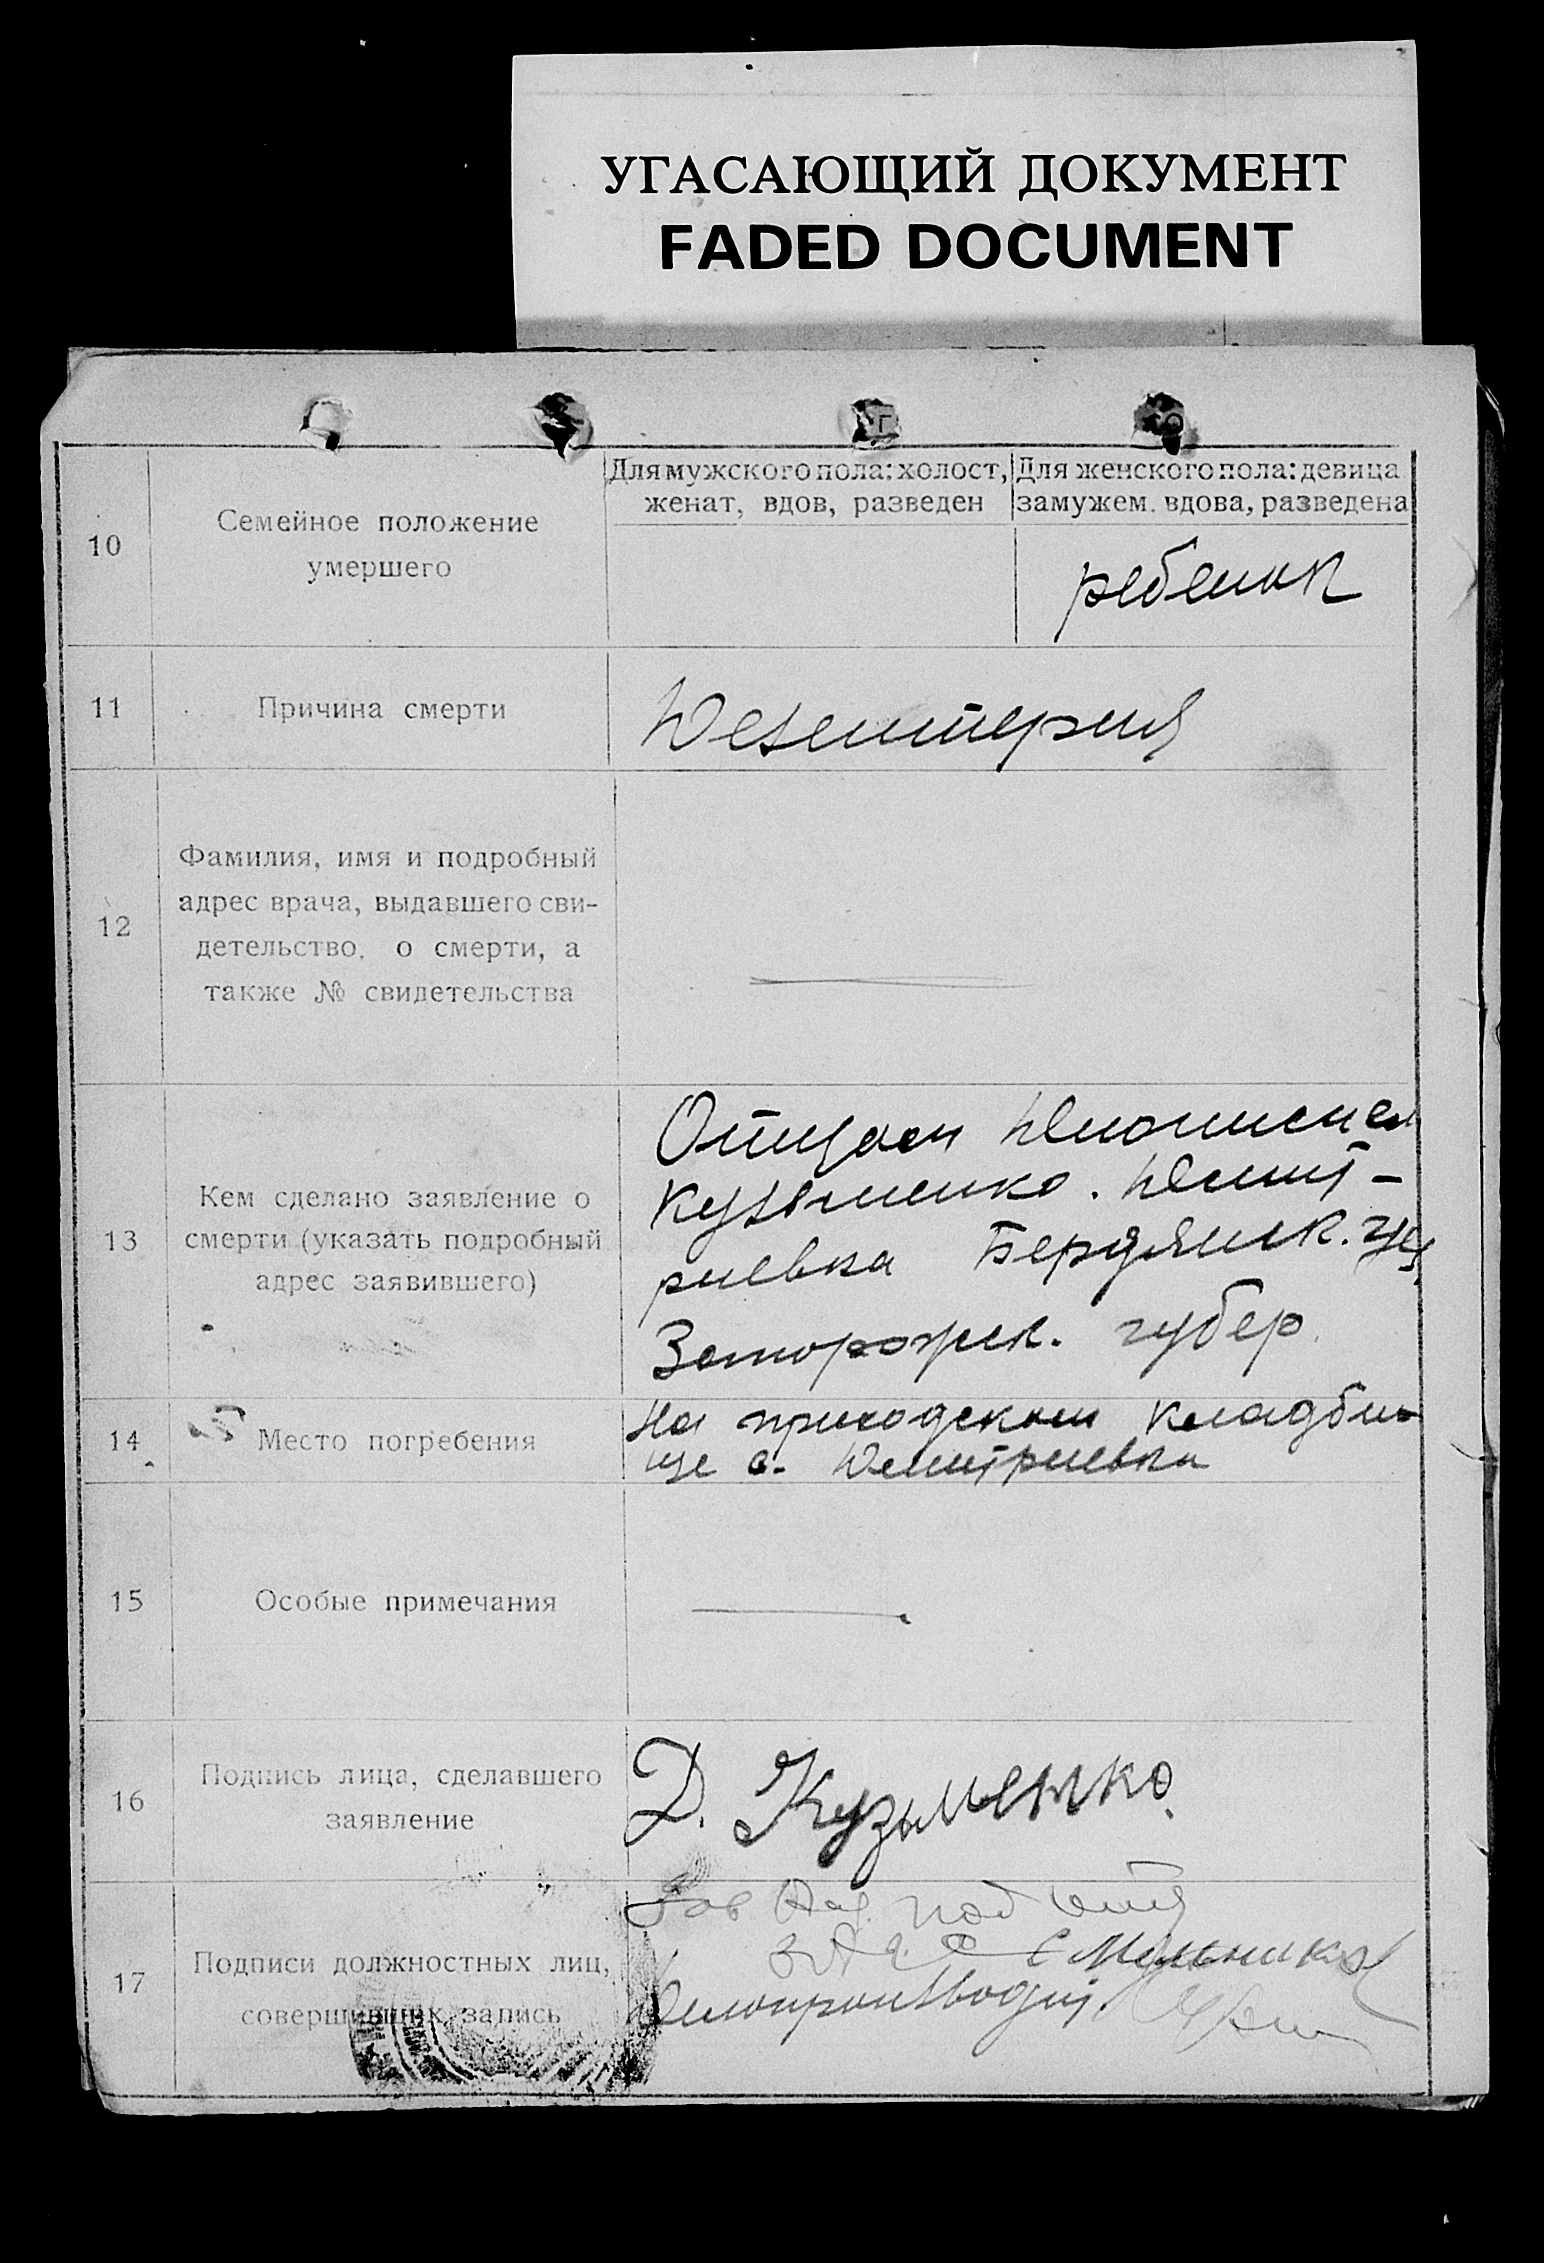 УГАСАЮЩИЙ ДОКУМЕНТ
FADED DOCUMENT
10
Семейное положение
умершего
Для мужского пола: холост,
женат, вдов, разведен
Для женского пола: девица
замужем. вдова, разведена
ребенок
11
Причина смерти
Дезентерия
12
Фамилия, имя и подробный
адрес врача, выдавшего сви-
детельство, о смерти, а
также № свидетельства
13
Кем сделано заявление о
смерти (указать подробный
адрес заявившего)
Отцом
Кузьменко. Дмит-
риевка Бердянск. уез
Запорожск. губер.
14
Место погребения
На приходском кладби-
ще с. Дмитриевка
15
Особые примечания
16
Подпись лица, сделавшего
заявление
Д. Кузьменко.
17
Подписи должностных лиц,
совершивших запись
Зав
Мельников
Делопроизводит.